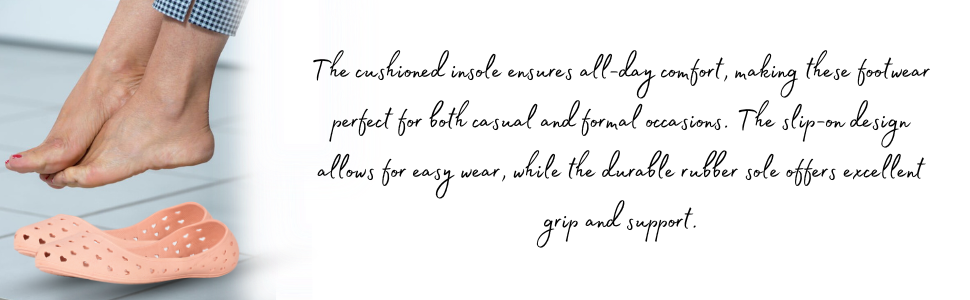 The cushioned insole ensures all-day comfort, making these footwear
perfect for both casual and formal occasions. The slip-on design
allows for easy wear, while the durable rubber sole offers excellent
grip and support.